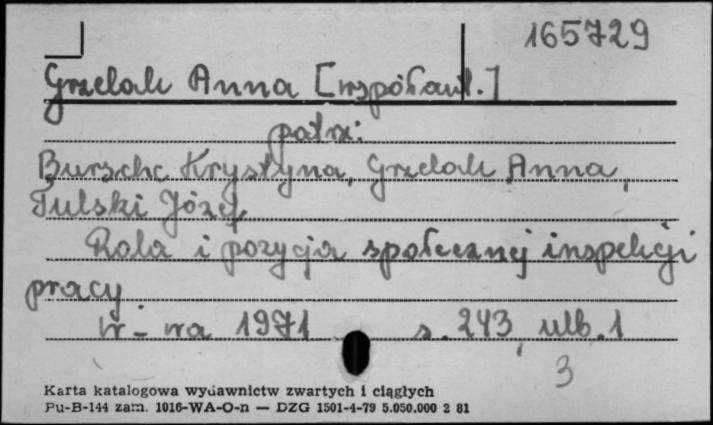 165729
Grzelak Anna [współaut.]
patrz:
Bursche Krystyna, Grzelak Anna,
Tulski Józef
Rola i pozycja społecznej inspekcji
pracy
W-wa 1971 s. 243, ulb. 1
3
Karta katalogowa wydawnictw zwartych i ciągłych
Pu-B-144 zam. 1016-WA-O-n — DZG 1501-4-79 5.050.000 2 81